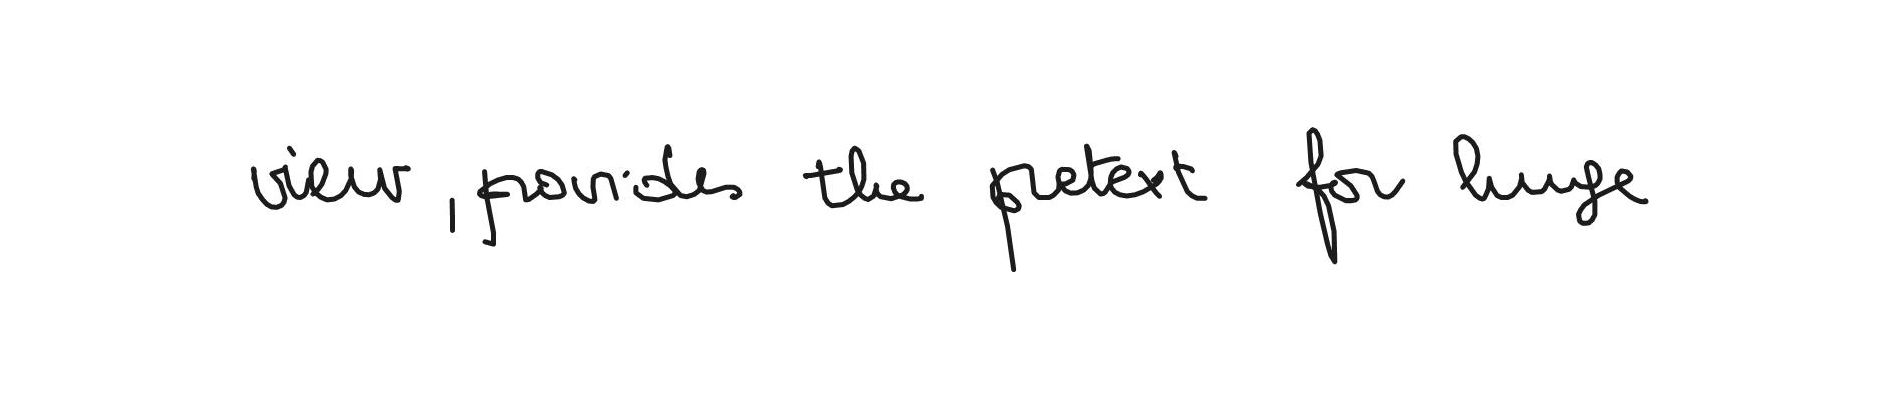 view, provides the pretext for huge